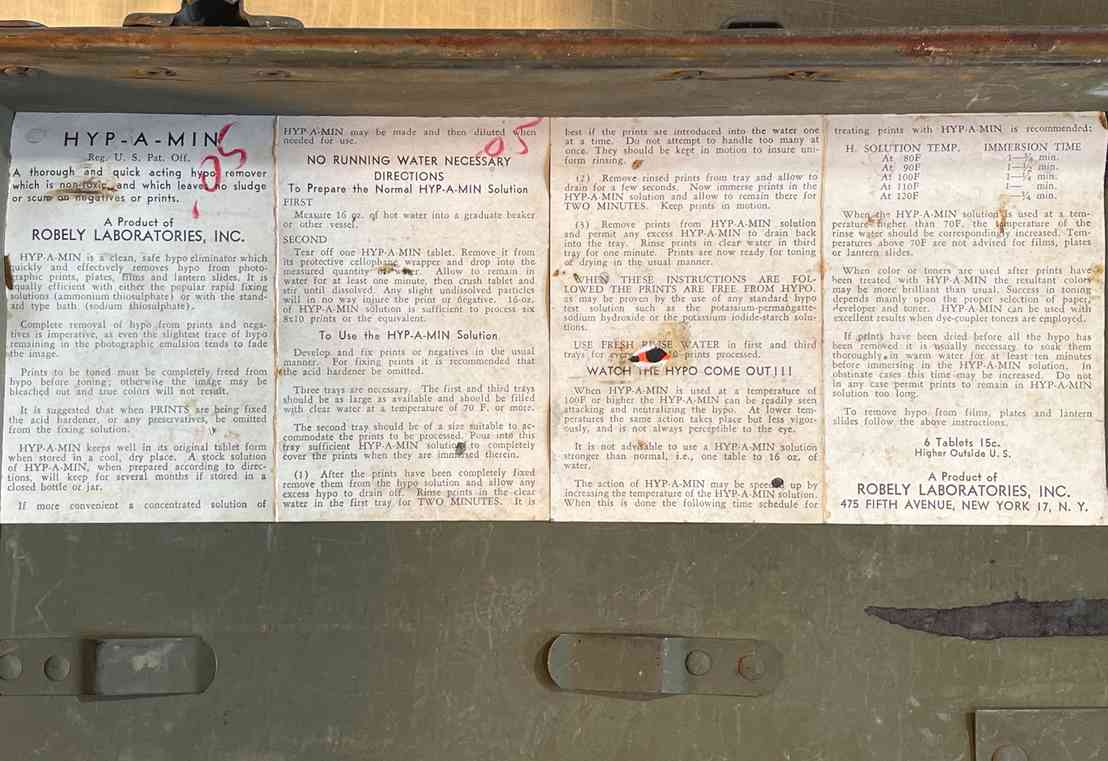 HYP-A-MIN
Reg. U. S. Pat. Off.
05
A thorough and quick acting hypo remover
which is non-toxic, and which leaves no sludge
or scum on negatives or prints.
A Product of
ROBELY LABORATORIES, INC.
HYP-A-MIN is a clean, safe hypo eliminator which
quickly and effectively removes hypo from photo-
graphic prints, plates, films and lantern slides. It is
equally efficient with either the popular rapid fixing
solutions (ammonium thiosulphate) or with the stand-
ard type bath (sodium thiosulphate).
Complete removal of hypo from prints and nega-
tives is imperative, as even the slightest trace of hypo
remaining in the photographic emulsion tends to fade
the image.
Prints to be toned must be completely freed from
hypo before toning; otherwise the image may be
bleached out and true colors will not result.
It is suggested that when PRINTS are being fixed
the acid hardener, or any preservatives, be omitted
from the fixing solution.
HYP-A-MIN keeps well in its original tablet form
when stored in a cool, dry place. A stock solution
of HYP-A-MIN, when prepared according to direc-
tions, will keep for several months if stored in a
closed bottle or jar.
If more convenient a concentrated solution of
HYP-A-MIN may be made and then diluted when
needed for use.
05
NO RUNNING WATER NECESSARY
DIRECTIONS
To Prepare the Normal HYP-A-MIN Solution
FIRST
Measure 16 oz. of hot water into a graduate beaker
or other vessel.
SECOND
Tear off one HYP-A-MIN tablet. Remove it from
its protective cellophane wrapper and drop into the
measured quantity Allow to remain in
water for at least one minute, then crush tablet and
stir until dissolved. Any slight undissolved particles
will in no way injure the print or negative. 16-oz.
of HYP-A-MIN solution is sufficient to process six
8x10 prints or the equivalent.
To Use the HYP-A-MIN Solution
Develop and fix prints or negatives in the usual
manner. For fixing prints it is recommended that
the acid hardener be omitted.
Three trays are necessary. The first and third trays
should be as large as available and should be filled
with clear water at a temperature of 70 F. or more.
The second tray should be of a size suitable to ac-
commodate the prints to be processed. Pour into this
tray sufficient HYP-A-MIN solution to completely
cover the prints when they are immersed therein.
(1) After the prints have been completely fixed
remove them from the hypo solution and allow any
excess hypo to drain off. Rinse prints in the clear
water in the first tray for TWO MINUTES. It is
best if the prints are introduced into the water one
at a time. Do not attempt to handle too many at
once. They should be kept in motion to insure uni-
form rinsing.
(2) Remove rinsed prints from tray and allow to
drain for a few seconds. Now immerse prints in the
HYP-A-MIN solution and allow to remain there for
TWO MINUTES. Keep prints in motion.
(3) Remove prints from HYP-A-MIN solution
and permit any excess HYP-A-MIN to drain back
into the tray. Rinse prints in clear water in third
tray for one minute. Prints are now ready for toning
or drying in the usual manner.
WHEN THESE INSTRUCTIONS ARE FOL-
LOWED THE PRINTS ARE FREE FROM HYPO,
as may be proven by the use of any standard hypo
test solution such as the potassium-permangatte-
sodium hydroxide or the potassium iodide-starch solu-
tions.
USE FRESH RINSE WATER in first and third
trays for prints processed.
WATCH THE HYPO COME OUT!!!
When HYP-A-MIN is used at a temperature of
100F or higher the HYP-A-MIN can be readily seen
attacking and neutralizing the hypo. At lower tem-
peratures the same action takes place but less vigor-
ously, and is not always perceptible to the eye.
It is not advisable to use a HYP-A-MIN solution
stronger than normal, i.e., one table to 16 oz. of
water.
The action of HYP-A-MIN may be speeded up by
increasing the temperature of the HYP-A-MIN solution.
When this is done the following time schedule for
treating prints with HYP-A-MIN is recommended:
H. SOLUTION TEMP. IMMERSION TIME
At 80F min.
At 90F min.
At 100F min.
At 110F 1— min.
At 120F ¾ min.
When the HYP-A-MIN solution is used at a tem-
perature higher than 70F, the temperature of the
rinse water should be correspondingly increased. Tem-
peratures above 70F are not advised for films, plates
or lantern slides.
When color or toners are used after prints have
been treated with HYP-A-MIN the resultant colors
may be more brilliant than usual. Success in toning
depends mainly upon the proper selection of paper,
developer and toner. HYP-A-MIN can be used with
excellent results when dye-coupler toners are employed.
If prints have been dried before all the hypo has
been removed it is usually necessary to soak them
thoroughly in warm water for at least ten minutes
before immersing in the HYP-A-MIN solution. In
obstinate cases this time may be increased. Do not
in any case permit prints to remain in HYP-A-MIN
solution too long.
To remove hypo from films, plates and lantern
slides follow the above instructions.
6 Tablets 15c.
Higher Outside U. S.
A Product of
ROBELY LABORATORIES, INC.
475 FIFTH AVENUE, NEW YORK 17, N. Y.